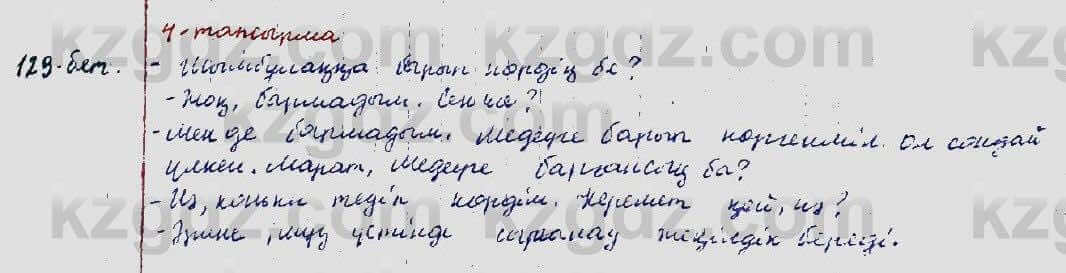 4-тапсырма
129-бет.
- Шымбұлаққа барып көрдің бе?
- Жоқ, бармадым. Сен ше?
- Мен де бармадым. Медеуге барып көргенмін. Ол сондай
үлкен. Марат, Медеуге барғансың ба?
- Иә, коньки теуіп көрдім. Керемет қой, иә?
- Әрине, мұз үстінде сырғанау жеңілдік береді.
kzgdz.com